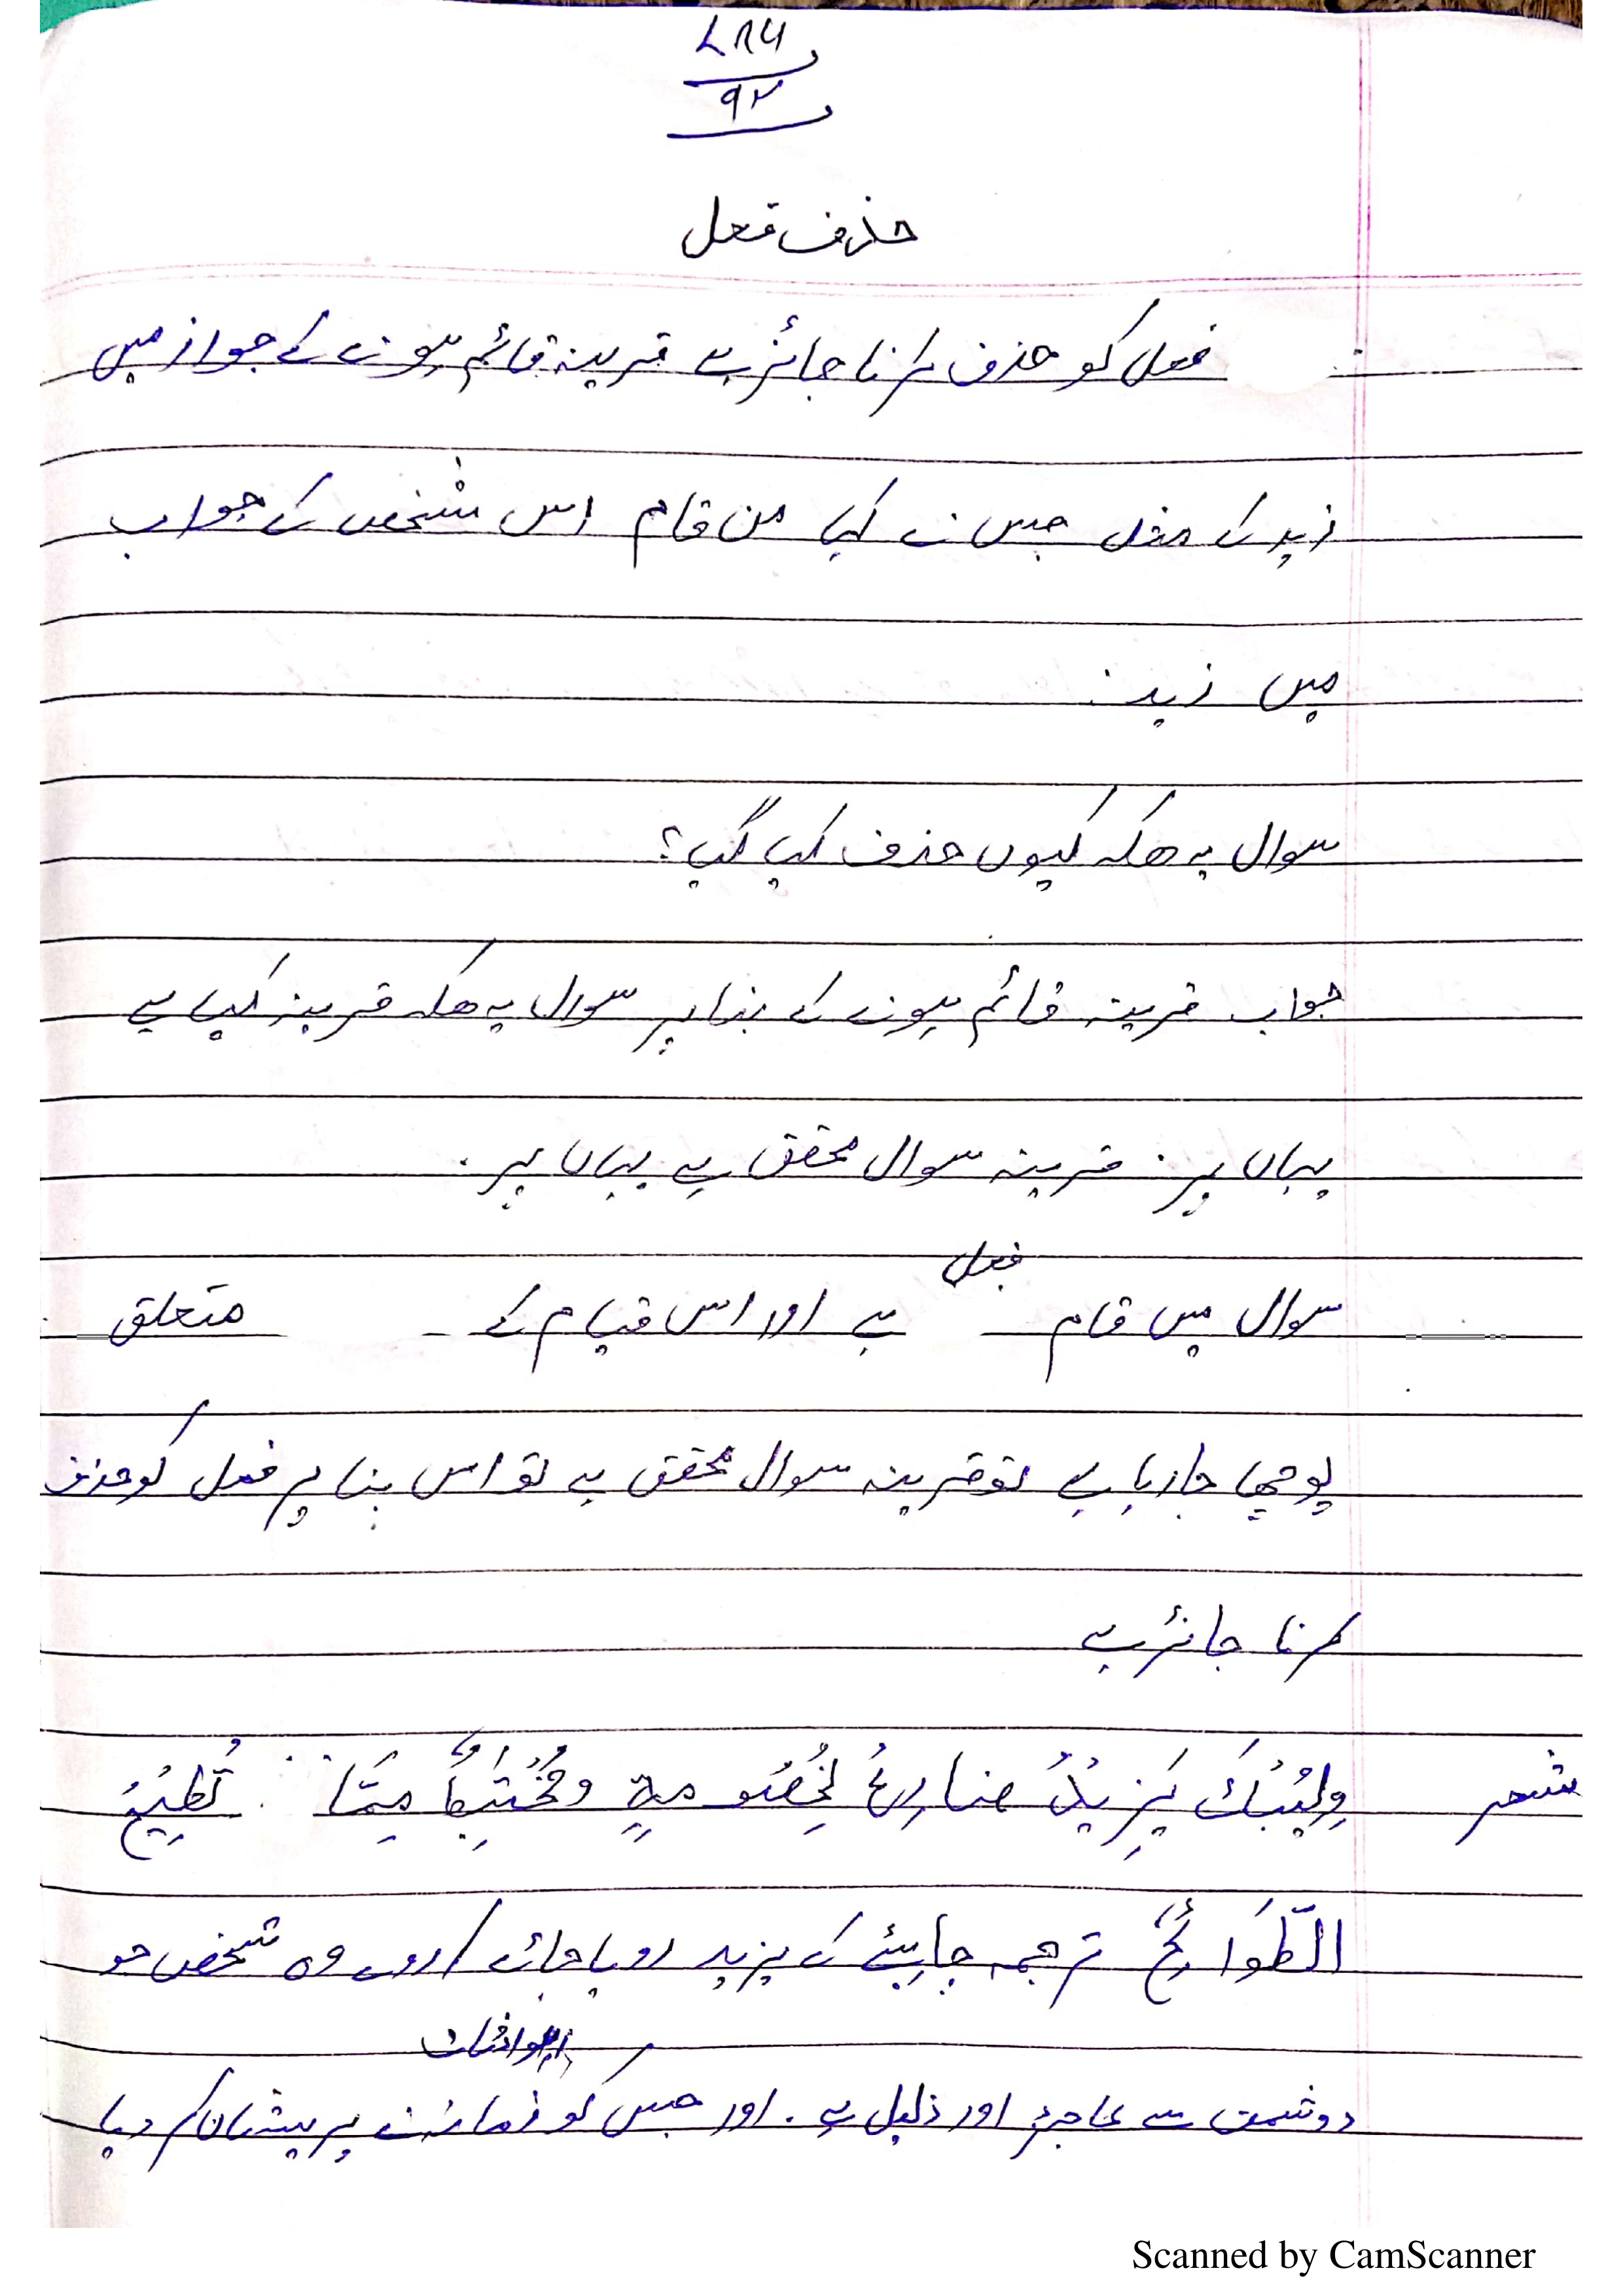 ۷۸۶
۹۲
حذف فعل
فعل کو حذف کرنا جائز ہے قرینہ قائم ہونے کے جواز میں
زید کے مثل جس نے کہا من قام اس شخص کے جواب
میں زید
سوال یہ ھیکہ کیوں حذف کیا گیا؟
جواب قرینہ قائم ہونے کے بنا پر سوال یہ ھیکہ قرینہ کیا ہے
یہاں پر۔ قرینہ سوال محقق ہے یہاں پر۔
سوال میں قام فعل ہے اور اس قیام کے متعلق
پوچھا جارہا ہے تو قرینہ سوال محقق ہے تو اس بنا پر فعل کو حذف
کرنا جائز ہے
شعر وَلِيُبْكَ يَزِيْدُ ضَارِعٌ لِخُصُومَةٍ وَمُخْتَبِطٌ مِمَّا تُطِيْحُ
الطَّوَائِحُ ترجمہ چاہیئے کے یزید رویا جائے / روے وہ شخص جو
دوشمن سے عاجز اور ذلیل ہے۔ اور جس کو زمانہ نے پریشان کر دیا